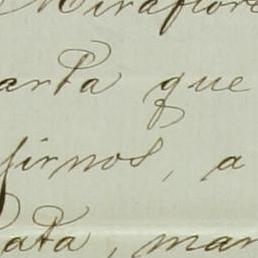 Miraflore
arta que
firnos, a
ata, man